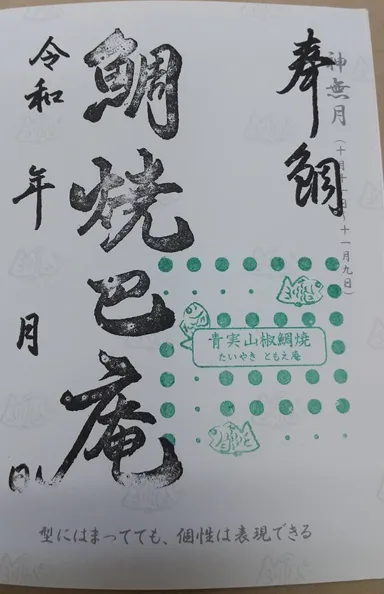 神無月(十月十一日~十一月九日)
奉鯛
青実山椒鯛焼
たいやき ともえ庵
鯛焼巴庵
令和 年 月 日
型にはまってても、個性は表現できる